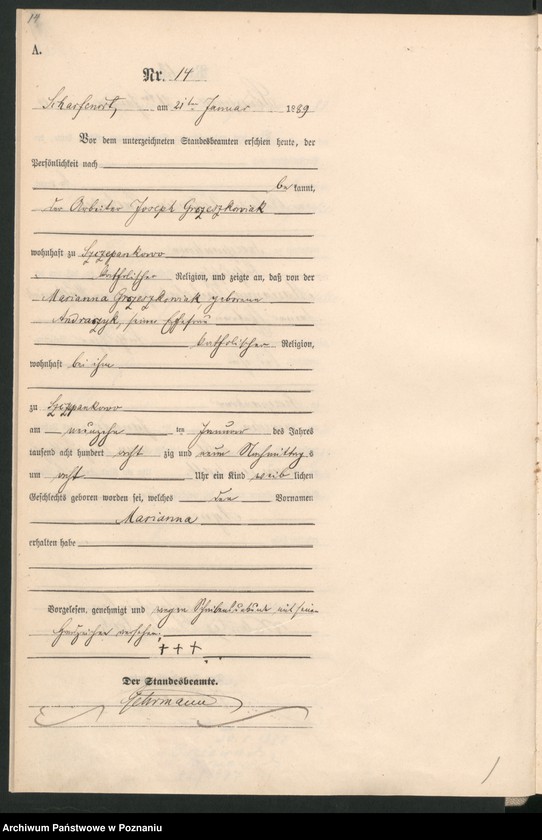 14
A.
Nr. 14
Scharfenort, am 21ten Januar 1889
Vor dem unterzeichneten Standesbeamten erschien heute, der
Persönlichkeit nach
be kannt,
der Arbeiter Joseph Grozeszkowiak
wohnhaft zu Szczepankowo
katholischer Religion, und zeigte an, daß von der
Marianna Grozeszkowiak, geborene
Andraszyk, seiner Ehefrau
katholischer Religion,
wohnhaft bei ihm
zu Szczepankowo
am neunzehn ten Januar des Jahres
tausend acht hundert acht zig und neun Nachmittag s
um acht Uhr ein Kind weib lichen
Geschlechts geboren worden sei, welches den Vornamen
Marianna
erhalten habe
Vorgelesen, genehmigt und wegen Schreibensunkunde mit seinem
Handzeichen versehen.
+++
Der Standesbeamte.
Gehrmann
Archiwum Państwowe w Poznaniu